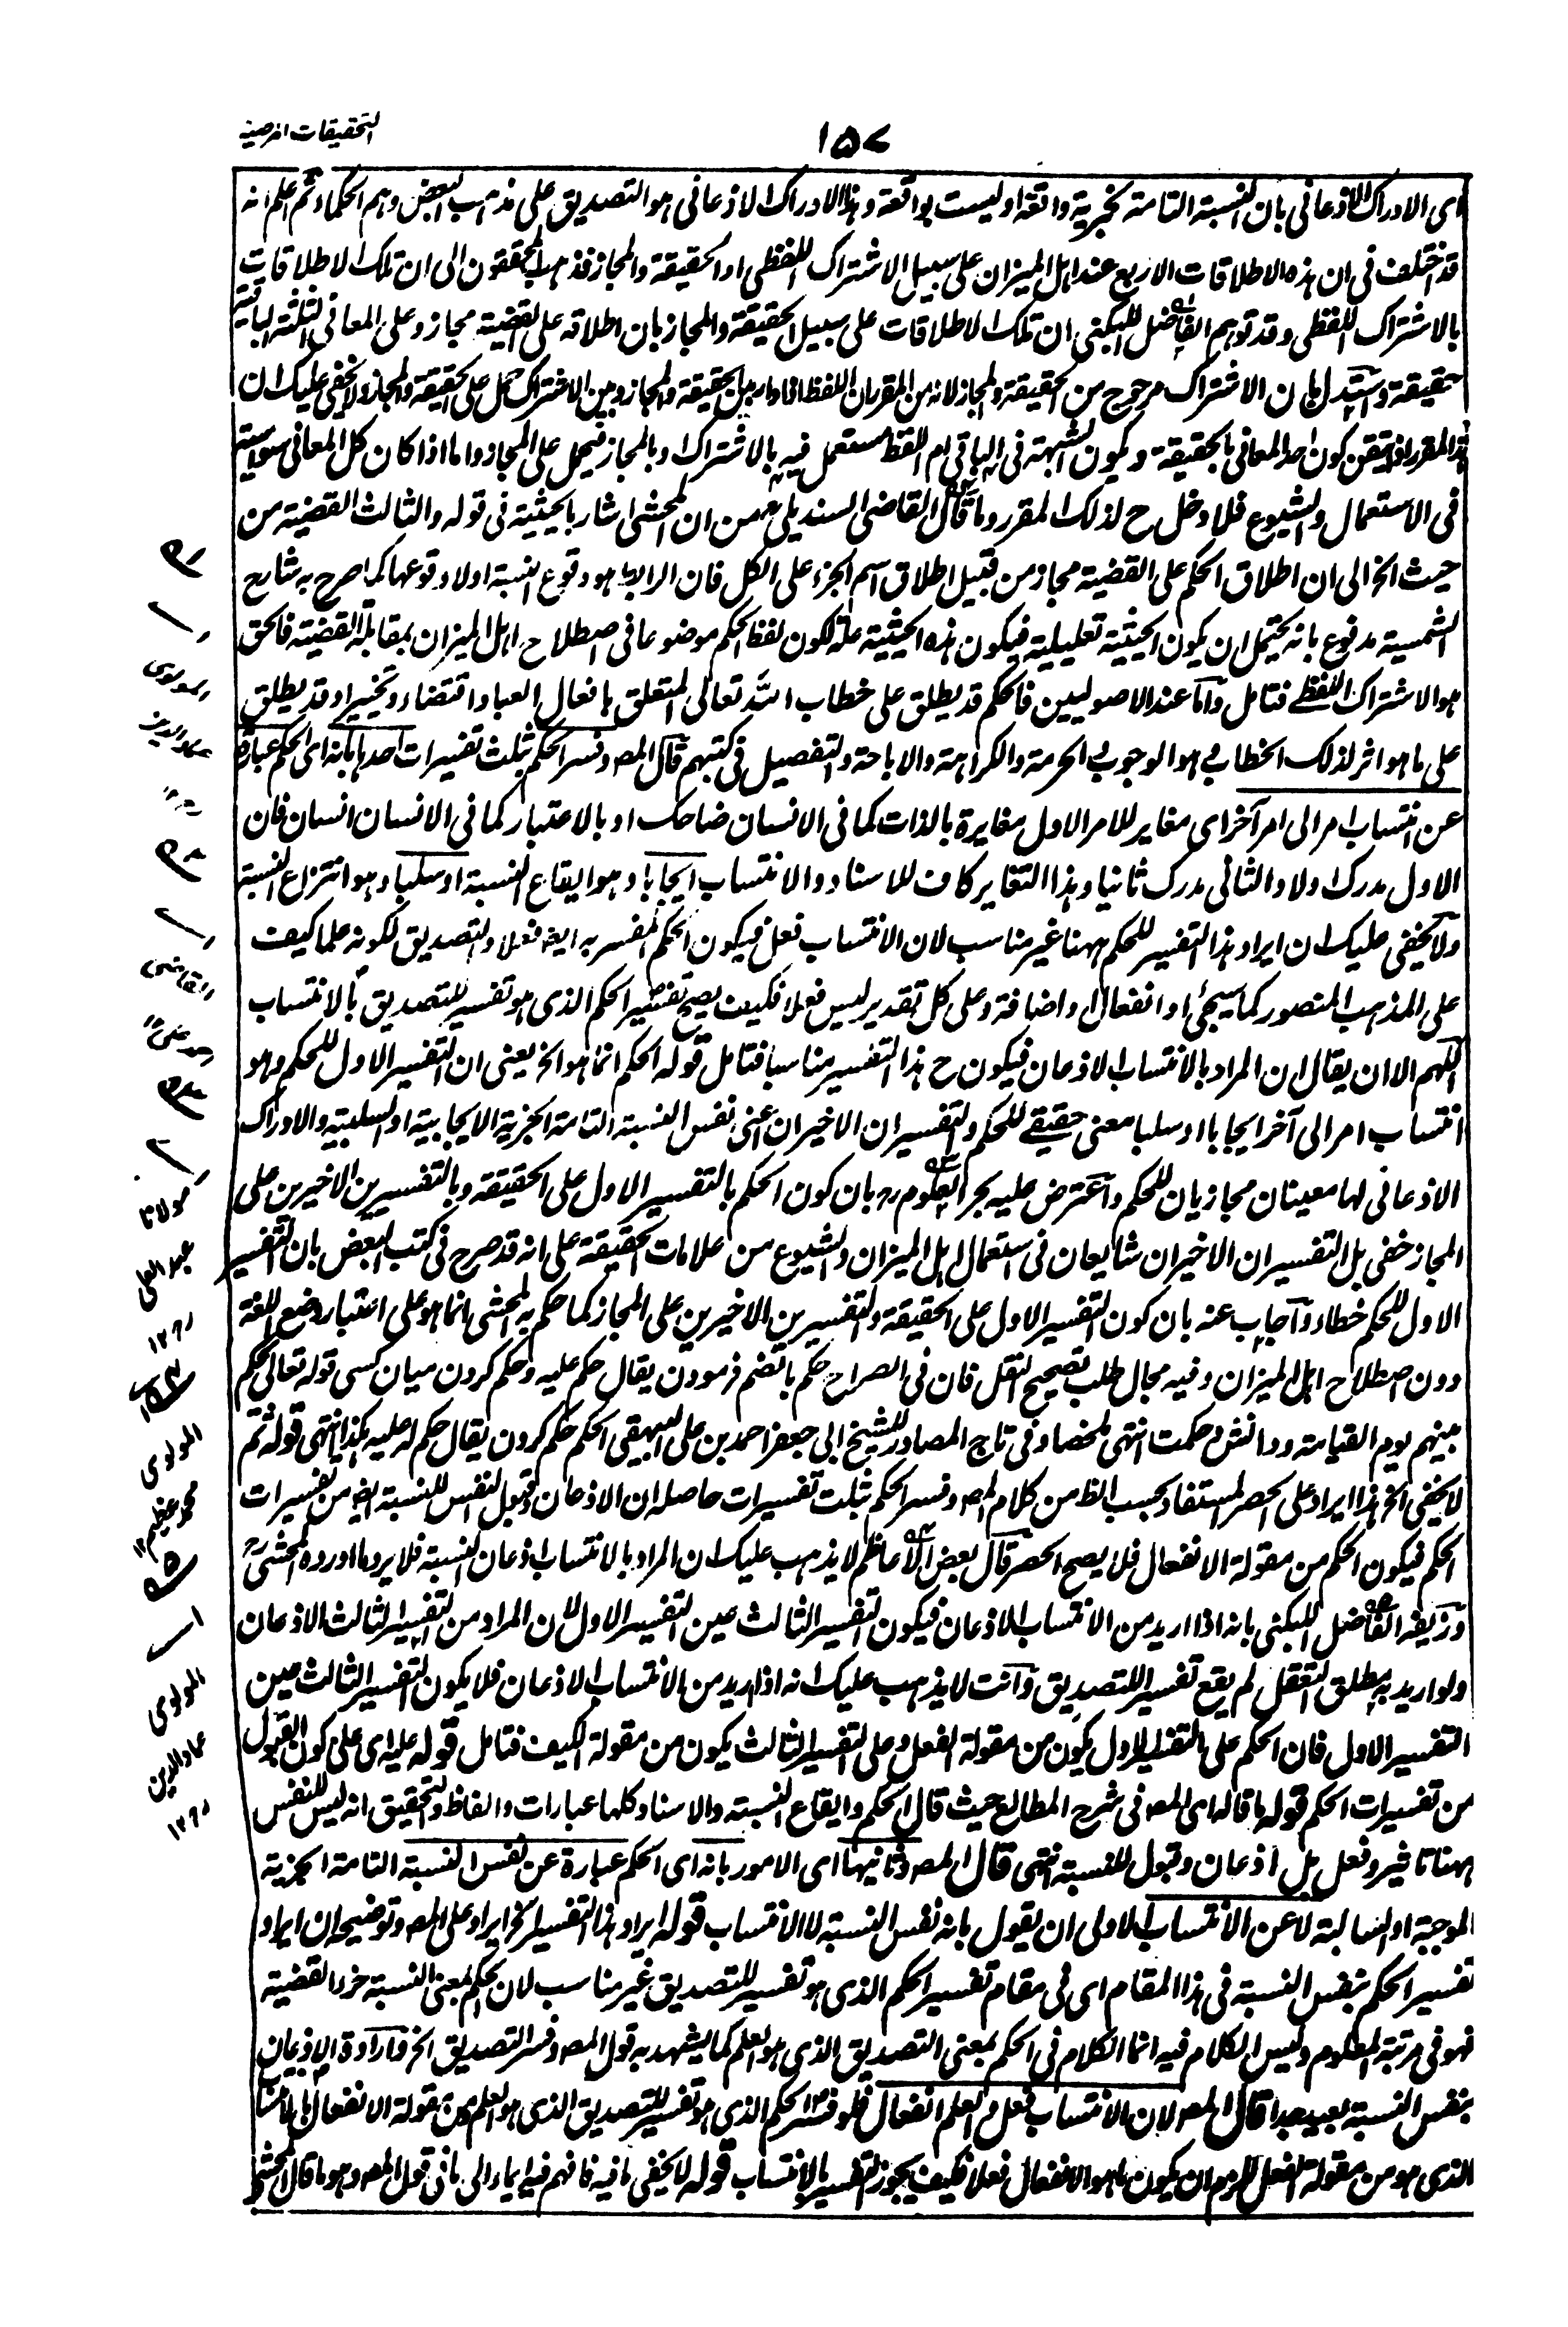 التحقيقات المرضية
١٥٧
اى الادراك الاذعانى بان النسبة التامة الخبرية واقعة او ليست بواقعة وهذا الادراك الاذعانى هو التصديق على مذهب البعض وهم الحكماء ثم اعلم انه
قد اختلف فى ان هذه الاطلاقات الاربع عند اهل الميزان على سبيل الاشتراك اللفظى او الحقيقة والمجاز فذهب المحققون الى ان تلك الاطلاقات
بالاشتراك اللفظى وقد توهم الفاضل اللبكنى ان تلك الاطلاقات على سبيل الحقيقة والمجاز بان اطلاقه على القضية مجاز وعلى المعانى الثلثة الباقية
حقيقة واستدل بان الاشتراك مرجوح من الحقيقة والمجاز لانه من المقرر ان اللفظ اذا دار بين الحقيقة والمجاز وبين الاشتراك حمل على الحقيقة والمجاز ولا يخفى عليك ان
هذا المقرر اذا تيقن كون احد المعانى بالحقيقة ويكون الشبهة فى الباقى ام اللفظ مستعمل فيه بالاشتراك او بالمجاز فيحمل على المجاز واما اذا كان كل المعانى سواسية
فى الاستعمال والشيوع فلا دخل ح لذلك المقرر وما قال القاضى السنديلى من ان المحشى اشار بالحيثية فى قوله والثالث القضية من
حيث الخ الى ان اطلاق الحكم على القضية مجاز من قبيل اطلاق اسم الجزء على الكل فان الرابط هو وقوع النسبة او لا وقوعها كما صرح به شارح
الشمسية مدفوع بانه يحتمل ان يكون الحيثية تعليلية فيكون هذه الحيثية علة لكون لفظ الحكم موضوعا فى اصطلاح اهل الميزان بمقابلة القضية فالحق
هو الاشتراك اللفظے فتامل واما عند الاصوليين فالحكم قد يطلق على خطاب الله تعالى المتعلق بافعال العباد اقتضاء وتخييرا وقد يطلق
على ما هو اثر لذلك الخطاب هو الوجوب والحرمة والكراهة والاباحة والتفصيل فى كتبهم قال المصـ وفسر الحكم بثلث تفسيرات احدها بانه اى الحكم عبارة
عن انتساب امر الى امر آخر اى مغاير للامر الاول مغايرة بالذات كما فى الانسان ضاحك او بالاعتبار كما فى الانسان انسان فان
الاول مدرك اولا والثانى مدرك ثانيا وهذا التغاير كاف للاسناد والانتساب ايجابا وهو ايقاع النسبة او سلبا وهو انتزاع النسبة
ولا يخفى عليك ان ايراد هذا التفسير للحكم ههنا غير مناسب لان الانتساب فعل فيكون الحكم المفسر به ايضا فعلا والتصديق لكونه علما كيف
على المذهب المنصور كما سيجئ او انفعال او اضافة وعلى كل تقدير ليس فعلا فكيف يصح تفسير الحكم الذى هو تفسير للتصديق بالانتساب
اللهم الا ان يقال ان المراد بالانتساب الاذعان فيكون ح هذا التفسير مناسبا فتامل قوله الحكم انما هو الخ يعنى ان التفسير الاول للحكم وهو
انتساب امر الى آخر ايجابا او سلبا معنى حقيقے للحكم والتفسيران الاخيران اعنى نفس النسبة التامة الخبرية الايجابية او السلبية والادراك
الاذعانى لها معنيان مجازيان للحكم واعترض عليه بحر العلوم رح بان كون الحكم بالتفسير الاول على الحقيقة وبالتفسيرين الاخيرين على
المجاز خفى بل التفسيران الاخيران شايعان فى استعمال اهل الميزان والشيوع من علامات الحقيقة على انه قد صرح فى كتب البعض بان التفسير
الاول للحكم خطاء واجاب عنه بان كون التفسير الاول على الحقيقة والتفسيرين الاخيرين على المجاز كما حكم به المحشى انما هو على اعتبار وضع اللغة
دون اصطلاح اهل الميزان وفيه مجال طلب تصحيح النقل فان فى الصراح حكم بالضم فرمودن يقال حكم عليه وحكم كردن ميان كسى قوله تعالى يحكم
بينهم يوم القيامة ودانش وحكمت انتهى ملخصا وفى تاج المصادر للشيخ ابى جعفر احمد بن على البيهقى الحكم حكم كردن يقال حكم له عليه بكذا انتهى قوله ثم
لا يخفى الخ هذا ايراد على الحصر المستفاد بحسب الظ من كلام المصـ وفسر الحكم بثلث تفسيرات حاصله ان الاذعان وقبول النفس للنسبة ايضا من تفسيرات
الحكم فيكون الحكم من مقولة الانفعال فلا يصح الحصر قال بعض الاعاظم لا يذهب عليك ان المراد بالانتساب اذعان النسبة فلا يرد ما اورده المحشى رح
وزيفه الفاضل اللبكنى بانه اذا اريد من الانتساب الاذعان فيكون التفسير الثالث عين التفسير الاول لان المراد من التفسير الثالث الاذعان
ولو اريد به مطلق التعقل لم يقع تفسيرا للتصديق وانت لا يذهب عليك انه اذا اريد من الانتساب الاذعان فلا يكون التفسير الثالث عين
التفسير الاول فان الحكم على التفسير الاول يكون من مقولة الفعل وعلى التفسير الثالث يكون من مقولة الكيف فتامل قوله عليه اى على كون القبول
من تفسيرات الحكم قوله ما قاله اى المصـ فى شرح المطالع حيث قال الحكم وايقاع النسبة والاسناد كلها عبارات والفاظ والتحقيق انه ليس للنفس
ههنا تاثير وفعل بل اذعان وقبول للنسبة انتهى قال المصـ وثانيها اى الامور بانه اى الحكم عبارة عن نفس النسبة التامة الخبرية
الموجبة او السالبة لا عن الانتساب الاولى ان يقول بانه نفس النسبة لا الانتساب قوله ايراد هذا التفسير الخ ايراد على المصـ وتوضيحه ان ايراد
تفسير الحكم بنفس النسبة فى هذا المقام اى فى مقام تفسير الحكم الذى هو تفسير للتصديق غير مناسب لان الحكم بمعنى النسبة جزء القضية
فهو فى مرتبة المعلوم وليس الكلام فيه انما الكلام فى الحكم بمعنى التصديق الذى هو العلم كما يشهد به قول المصـ وفسر التصديق الخ فارادة الاذعان
بنفس النسبة بعيد جدا قال المصـ لان الانتساب فعل والعلم انفعال فلو فسر الحكم الذى هو تفسير للتصديق الذى هو العلم من مقولة الانفعال بالانتساب
الذى هو من مقولة الفعل للزم ان يكون ما هو الانفعال فعلا فكيف يجوز التفسير بالانتساب قوله لا يخفى ما فيه فافهم فيه ايماء الى ما فى قول المصـ وهو ما قال المحشى
المولوى
عماد الدين
القاضى
احمد على
مولانا
عبد العلى
المولوى
محمد عظيم
المولوى
عماد الدين